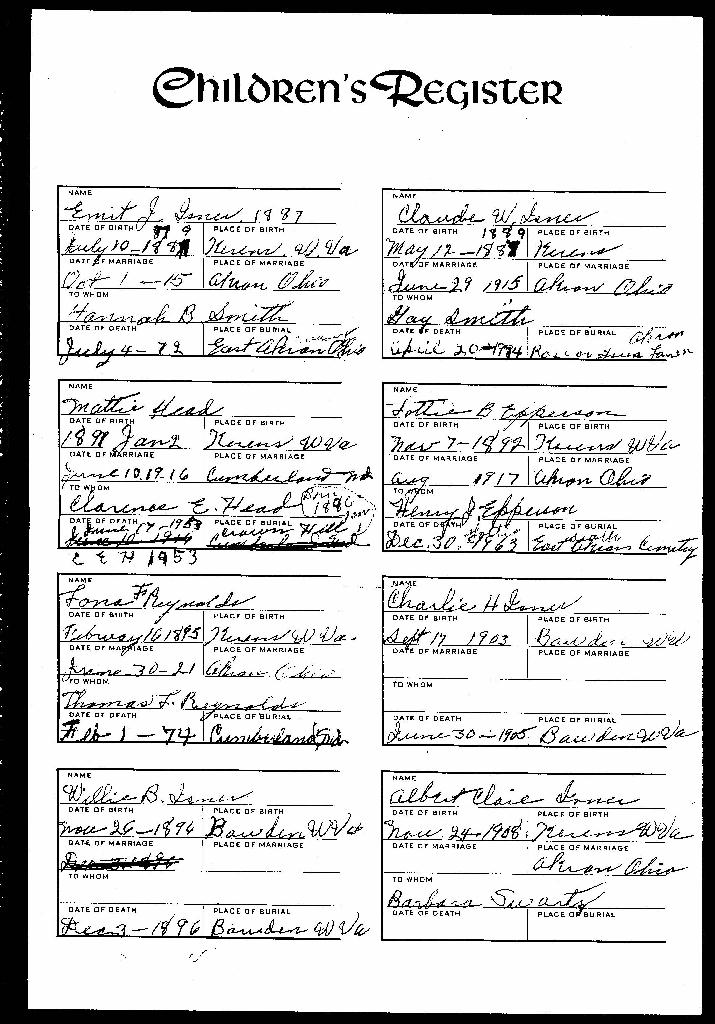 Children's Register
NAME
Emit J. Isner, 1887
DATE OF BIRTH PLACE OF BIRTH
July 10-188 Kerens, W. Va
DATE OF MARRIAGE PLACE OF MARRIAGE
Oct 1 -15 Akron Ohio
TO WHOM
Hannah B Smith
DATE OF DEATH PLACE OF BURIAL
July 4-72 East Akron Ohio
NAME
Claude W. Isner
DATE OF BIRTH 1889 PLACE OF BIRTH
May 12-188 Kerens
DATE OF MARRIAGE PLACE OF MARRIAGE
June 29 1915 Akron Ohio
TO WHOM
Hay Smith
DATE OF DEATH PLACE OF BURIAL Akron
April 20
NAME
Mattie Head
DATE OF BIRTH PLACE OF BIRTH
1891 Jan 2 Kerens W Va
DATE OF MARRIAGE PLACE OF MARRIAGE
June 10, 19.16 Cumberland Md
TO WHOM
Clarence E. Head
DATE OF DEATH PLACE OF BURIAL
June 17-1953 Crown Hill
C E H 1953
NAME
Lottie B Epperson
DATE OF BIRTH PLACE OF BIRTH
Nov 7-1892 Kerens W Va
DATE OF MARRIAGE PLACE OF MARRIAGE
Aug 1917 Akron Ohio
TO WHOM
Henry J Epperson
DATE OF DEATH PLACE OF BURIAL
Dec. 30, 1963 East Akron Cemetery
NAME
Lona F Reynolds
DATE OF BIRTH PLACE OF BIRTH
Febuary 16 1895 Kerens W Va.
DATE OF MARRIAGE PLACE OF MARRIAGE
June 30-21 Akron Ohio
TO WHOM
Thomas F. Reynolds
DATE OF DEATH PLACE OF BURIAL
Feb 1-74 Cumberland Md.
NAME
Charlie H Isner
DATE OF BIRTH PLACE OF BIRTH
Sept 17 1903 Bawden W Va
DATE OF MARRIAGE PLACE OF MARRIAGE
TO WHOM
DATE OF DEATH PLACE OF BURIAL
June 30-1905 Bawden W Va
NAME
Willie B. Isner
DATE OF BIRTH PLACE OF BIRTH
Nov 26-1896 Bawden W Va
DATE OF MARRIAGE PLACE OF MARRIAGE
TO WHOM
DATE OF DEATH PLACE OF BURIAL
Dec 3-1896 Bawden W Va
NAME
Albert Claie Isner
DATE OF BIRTH PLACE OF BIRTH
Nov 24-1908 Kerens W Va
DATE OF MARRIAGE PLACE OF MARRIAGE
Akron Ohio
TO WHOM
Barbara Swarts
DATE OF DEATH PLACE OF BURIAL